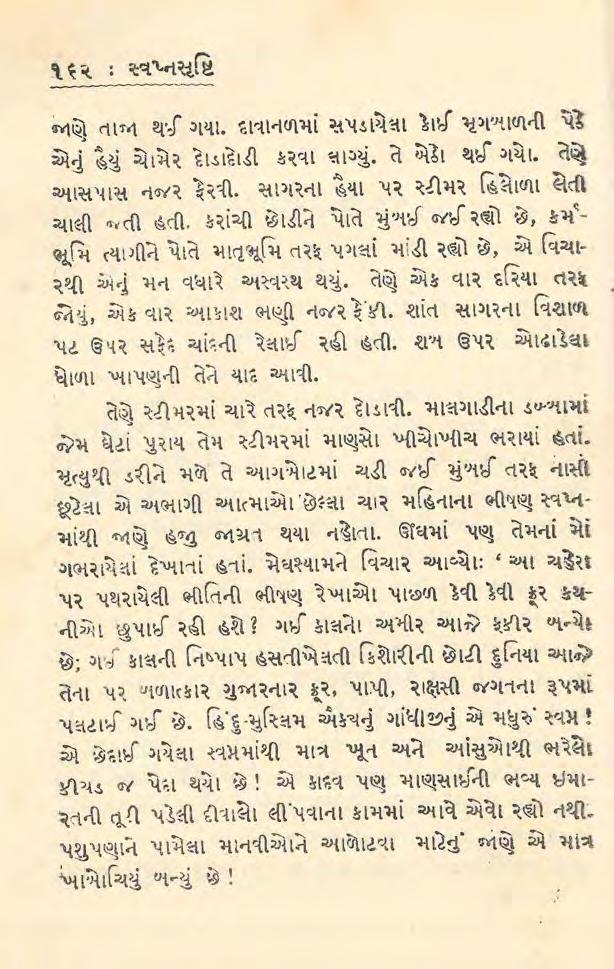 ૧૬૨ : સ્વપ્નસૃષ્ટિ
જાણે તાજા થઈ ગયા. દાવાનળમાં સપડાયેલા કોઈ મૃગબાળની પેઠે
એનું હૈયું ચોમેર દોડાદોડી કરવા લાગ્યું. તે બેઠો થઈ ગયો. તેણે
આસપાસ નજર ફેરવી. સાગરના હૈયા પર સ્ટીમર હિલોળા લેતી
ચાલી જતી હતી. કરાંચી છોડીને પોતે મુંબઈ જઈ રહ્યો છે, કર્મ-
ભૂમિ ત્યાગીને પોતે માતૃભૂમિ તરફ પગલાં માંડી રહ્યો છે, એ વિચા-
રથી એનું મન વધારે અસ્વસ્થ થયું. તેણે એક વાર દરિયા તરફ
જોયું, એક વાર આકાશ ભણી નજર ફેંકી. શાંત સાગરના વિશાળ
પટ ઉપર સફેદ ચાંદની રેલાઈ રહી હતી. શબ ઉપર ઓઢાડેલા
ધોળા ખાપણની તેને યાદ આવી.
તેણે સ્ટીમરમાં ચારે તરફ નજર દોડાવી. માલગાડીના ડબ્બામાં
જેમ ઘેટાં પુરાય તેમ સ્ટીમરમાં માણસો ખીચોખીચ ભરાયાં હતાં.
મૃત્યુથી ડરીને મળે તે આગબોટમાં ચડી જઈ મુંબઈ તરફ નાસી
છૂટેલા એ અભાગી આત્માઓ છેલ્લા ચાર મહિનાના ભીષણ સ્વપ્ન-
માંથી જાણે હજી જાગ્રત થયા નહોતા. ઊંઘમાં પણ તેમનાં મોં
ગભરાયેલાં દેખાતાં હતાં. મેઘશ્યામને વિચાર આવ્યોઃ ‘ આ ચહેરા
પર પથરાયેલી ભીતિની ભીષણ રેખાઓ પાછળ કેવી કેવી ક્રૂર કથ-
નીઓ છુપાઈ રહી હશે? ગઈ કાલનો અમીર આજે ફકીર બન્યો
છે; ગઈ કાલની નિષ્પાપ હસતીખેલતી કિશોરીની છોટી દુનિયા આજે
તેના પર બળાત્કાર ગુજારનાર ક્રૂર, પાપી, રાક્ષસી જગતના રૂપમાં
પલટાઈ ગઈ છે. હિંદુ-મુસ્લિમ ઐક્યનું ગાંધીજીનું એ મધુરું સ્વપ્ન !
એ છેદાઈ ગયેલા સ્વપ્નમાંથી માત્ર ખૂન અને આંસુઓથી ભરેલો
કીચડ જ પેદા થયો છે ! એ કાદવ પણ માણસાઈની ભવ્ય ઇમા-
રતની તૂટી પડેલી દીવાલો લીંપવાના કામમાં આવે એવો રહ્યો નથી.
પશુપણાને પામેલા માનવીઓને આળોટવા માટેનું જાણે એ માત્ર
ખાબોચિયું બન્યું છે !